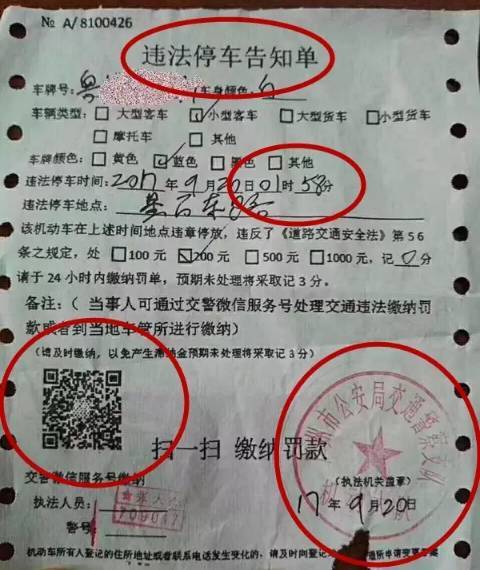 № A/8100426
违法停车告知单
车牌号：粤 车身颜色：
车辆类型：□大型客车 ☑小型客车 □大型货车 □小型货车
□摩托车 □其他
车牌颜色：□黄色 ☑蓝色 □黑色 □其他
违法停车时间：2017年9月20日01时58分
违法停车地点：
该机动车在上述时间地点违章停放，违反了《道路交通安全法》第56
条之规定，处 □100元 ☑200元 □500元 □1000元，记0分
请于24小时内缴纳罚单，预期未处理将采取记3分。
备注：（ 当事人可通过交警微信服务号处理交通违法缴纳罚
款或者到当地车管所进行缴纳）
（请及时缴纳，以免产生滞纳金预期未处理将采取记3分）
扫一扫 缴纳罚款
州市公安局交通警察支队
（执法机关盖章）
17年9月20日
交警微信服务号缴纳
执法人员：
警号：
机动车所有人登记的住所地址或者联系电话发生变化的，请及时向登记地